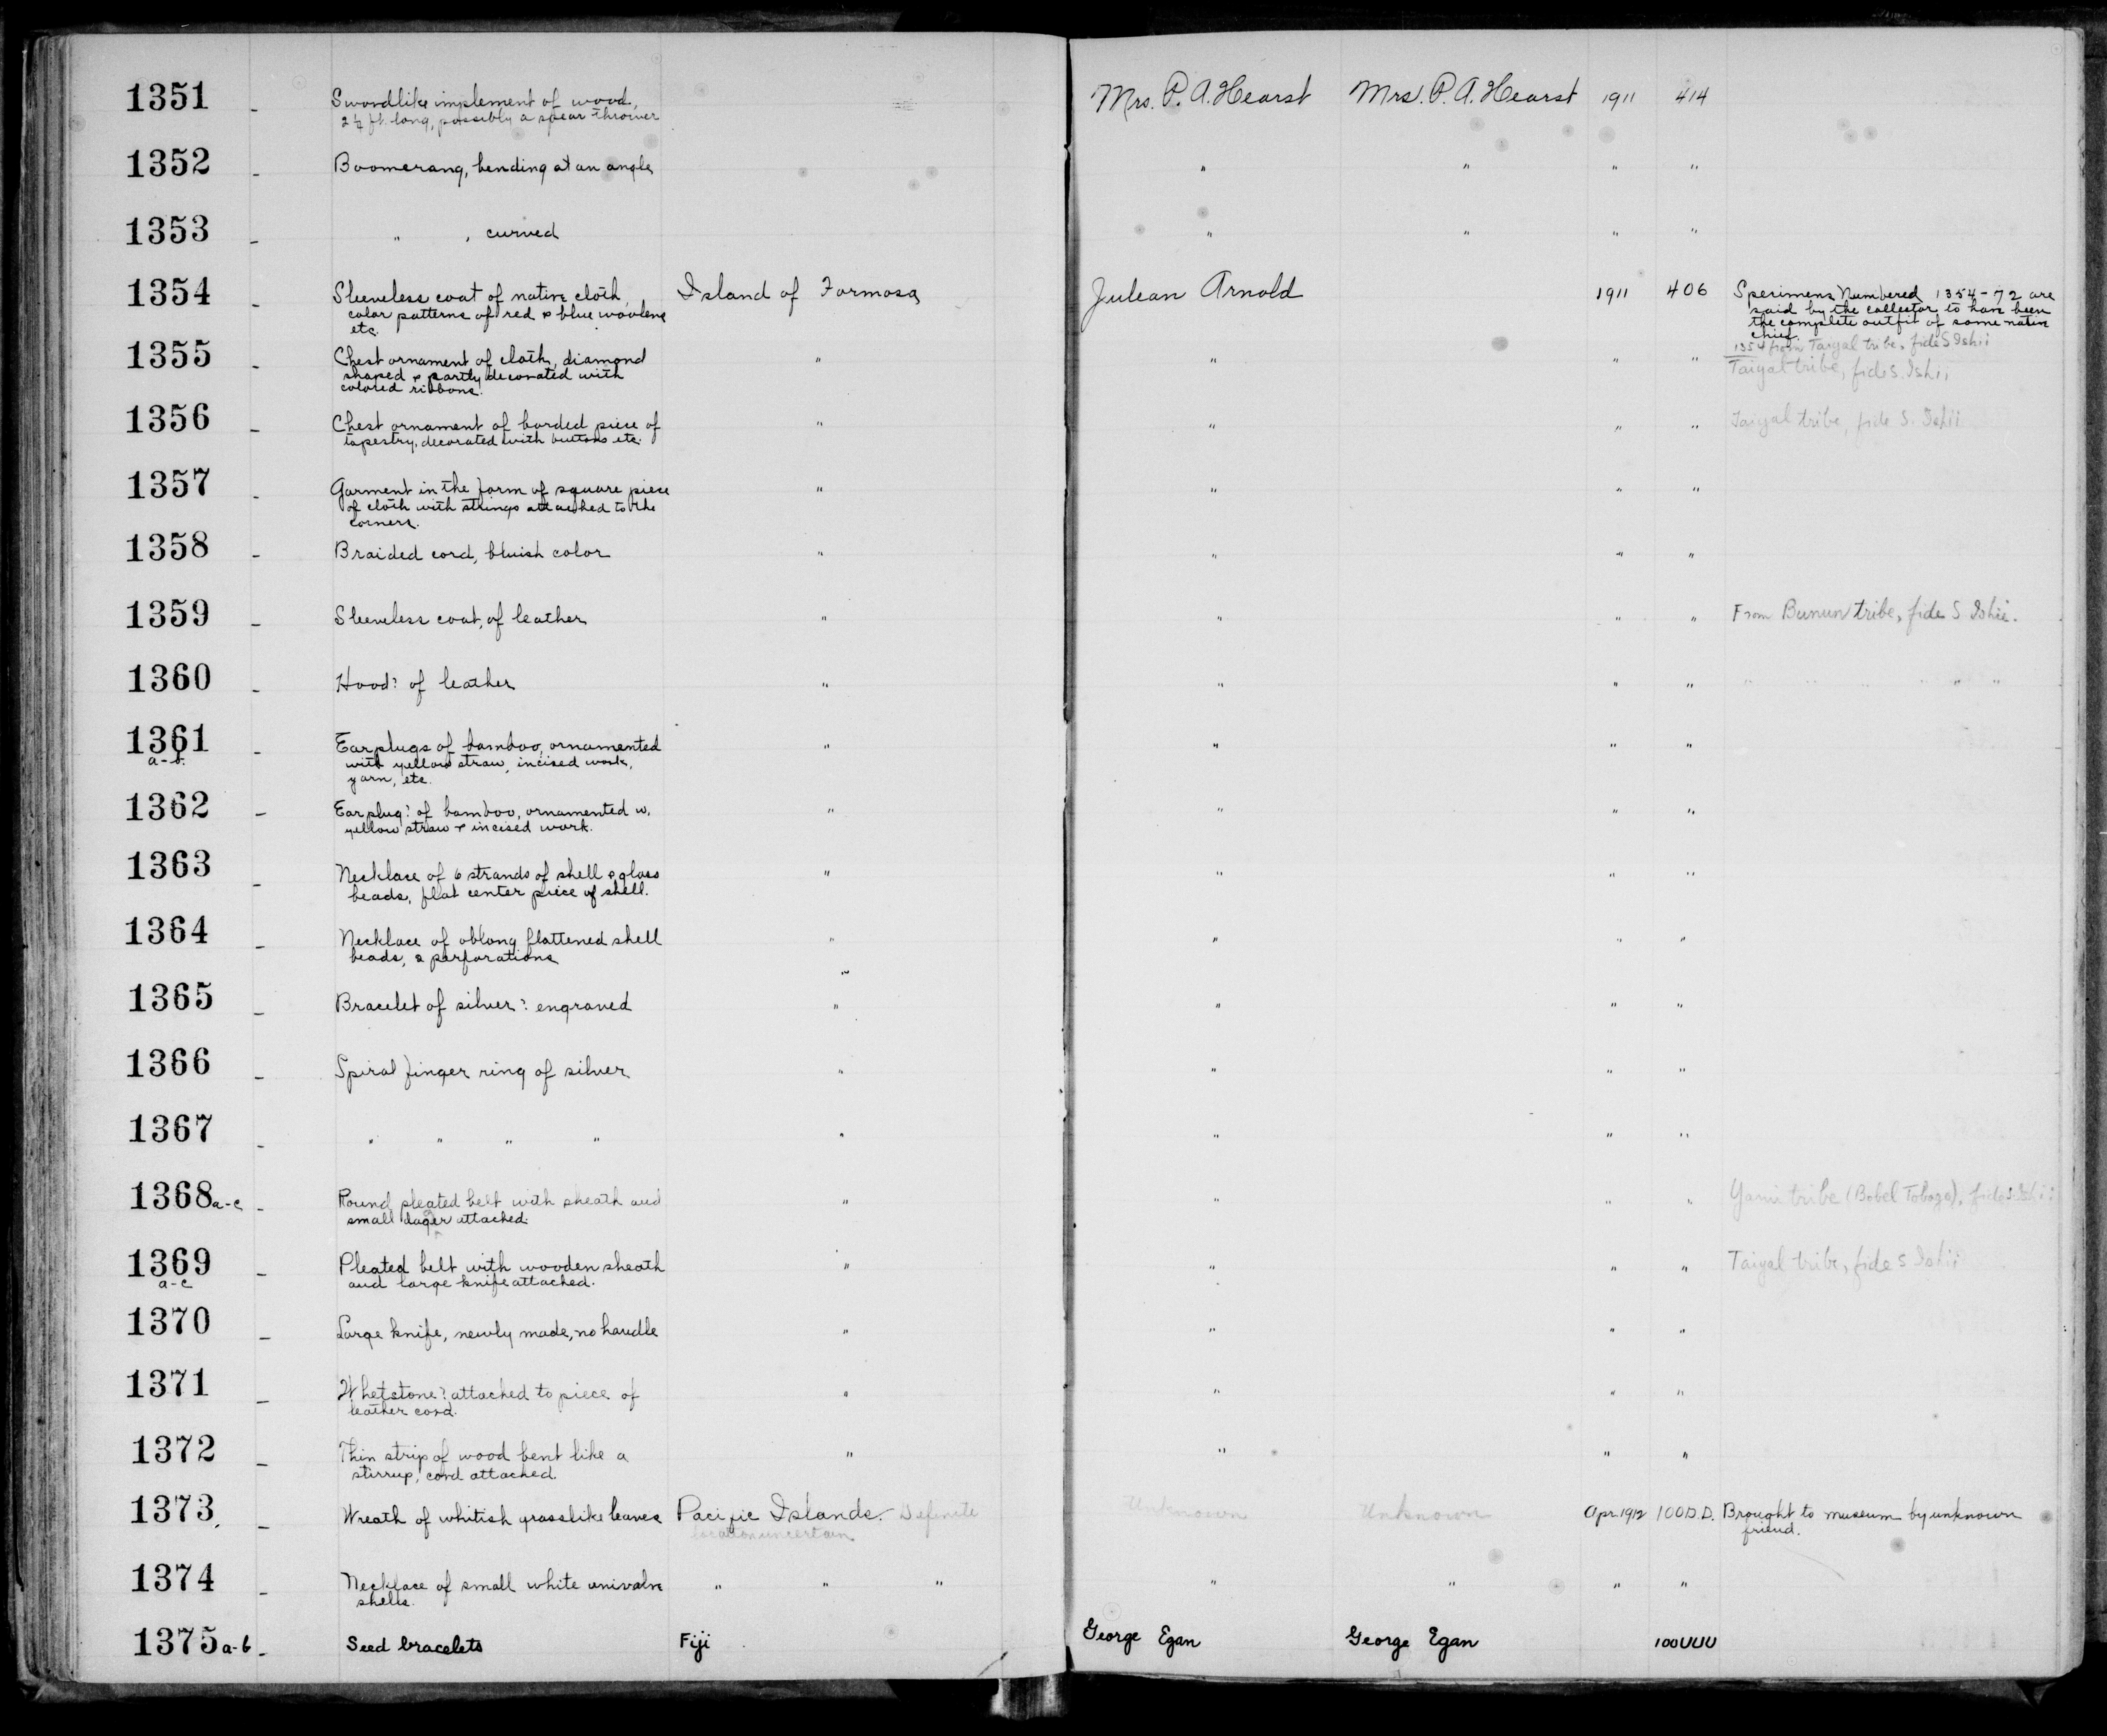 1351 - Swordlike implement of wood, Mrs. P. A. Hearst Mrs. P. A. Hearst 1911 414
2¼ ft. long, possibly a spear thrower
1352 - Boomerang, bending at an angle " " " "
1353 - " , curved " " " "
1354 - Sleeveless coat of native cloth, Island of Formosa Julean Arnold 1911 406 Specimens Numbered 1354-72 are
color patterns of red & blue woolens said by the collector to have been
etc. the complete outfit of some native
chief.
1354 from Taiyal tribe, fide S Ishii
1355 - Chest ornament of cloth, diamond " " " " Taiyal tribe, fide S. Ishii
shaped & partly decorated with
colored ribbons.
1356 - Chest ornament of borded piece of " " " " Taiyal tribe, fide S. Ishii
tapestry, decorated with buttons etc.
1357 - Garment in the form of square piece " " " "
of cloth with strings attached to the
corners.
1358 - Braided cord, bluish color " " " "
1359 - Sleeveless coat, of leather " " " " From Bunun tribe, fide S Ishii.
1360 - Hood? of leather " " " " " " " " " "
1361 - Earplugs of bamboo, ornamented " " " "
a-b. with yellow straw, incised work,
yarn, etc.
1362 - Earplug? of bamboo, ornamented w. " " " "
yellow straw & incised work.
1363 - Necklace of 6 strands of shell & glass " " " "
beads, flat center piece of shell.
1364 - Necklace of oblong flattened shell " " " "
beads, 2 perforations
1365 - Bracelet of silver? engraved " " " "
1366 - Spiral finger ring of silver " " " "
1367 - " " " " " " " "
1368 a-c - Round pleated belt with sheath and " " " " Yami tribe (Bobel Tobago), fide S. Ishii
small dager attached.
1369 - Pleated belt with wooden sheath " " " " Taiyal tribe, fide S Ishii
a-c and large knife attached.
1370 - Large knife, newly made, no handle " " " "
1371 - Whetstone? attached to piece of " " " "
leather cord.
1372 - Thin strip of wood bent like a " " " "
stirrup, cord attached.
1373 - Wreath of whitish grasslike leaves Pacific Islands. Definite Unknown Unknown Apr. 1912 100 D.D. Brought to museum by unknown
location uncertain friend.
1374 - Necklace of small white univalve " " " " " " "
shells.
1375 a-b - Seed bracelets Fiji George Egan George Egan 100UUU